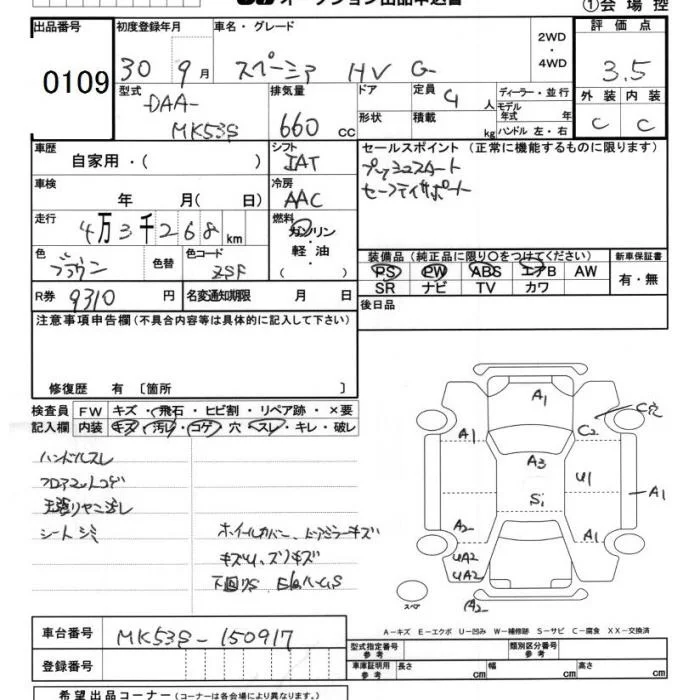 オークション出品申込書 ①会場控
出品番号 初度登録年月 車名・グレード 評価点
0109 30 9月 スペーシア HV G 2WD・4WD 3.5
型式 排気量 ドア 定員 4人 ディーラー・並行 外装 内装
DAA- MK53S 660cc 形状 積載 kg モデル年式 年 ハンドル 左・右 C C
車歴 自家用・( ) シフト IAT セールスポイント (正常に機能するものに限ります)
プッシュスタート
セーフティサポート
車検 年 月( 日) 冷房 AAC
走行 4万3千268km 燃料 ガソリン・軽油・( )
色 ブラウン 色替 色コード ZSF
装備品(純正品に限り○をつけてください) 新車保証書
PS PW ABS エアB AW 有・無
SR ナビ TV カワ
R券 9310円 名変通知期限 月 日 後日品
注意事項申告欄(不具合内容等は具体的に記入して下さい)
修復歴 有 〔箇所 〕
検査員 FW キズ・飛石・ヒビ割・リペア跡・×要
記入欄 内装 キズ・汚レ・コゲ・穴・スレ・キレ・破レ
ハンドルスレ
フロアマットコゲ
シートシミ
ホイールカバー、ドアミラーキズ
下回りS
A1
C穴
A1 C2
A3
U1
A1
S1
A2 A1
UA2
UA2
スペア A2
A-キズ E-エクボ U-凹み W-補修跡 S-サビ C-腐食 XX-交換済
車台番号 MK53S-150917
型式指定番号 参考 類別区分番号 参考
登録番号 車庫証明用 参考 長さ cm 幅 cm 高さ cm
希望出品コーナー(コーナーは各会場により異なります。)